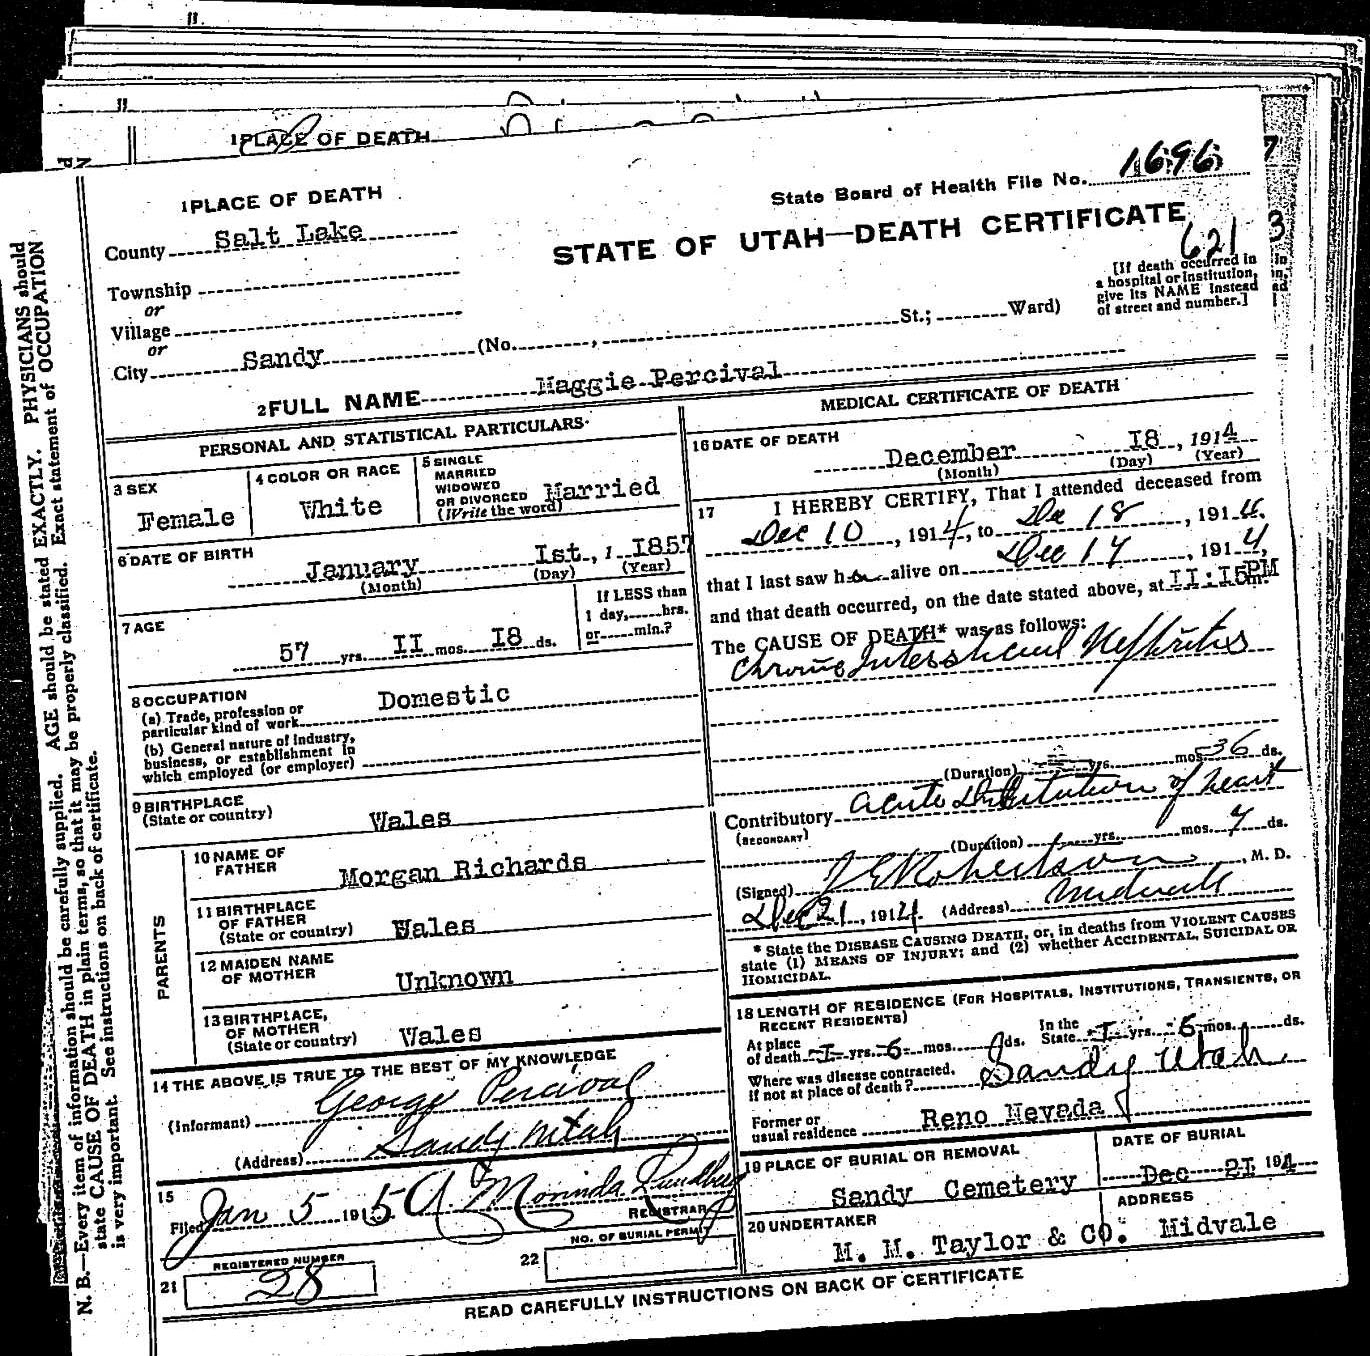 1 PLACE OF DEATH
1 PLACE OF DEATH
State Board of Health File No. 1696
County Salt Lake
STATE OF UTAH—DEATH CERTIFICATE
621
Township
or
Village
or
City Sandy (No. , St.; Ward)
[If death occurred in
a hospital or institution,
give its NAME instead
of street and number.]
2 FULL NAME Maggie Percival
PERSONAL AND STATISTICAL PARTICULARS
3 SEX
Female
4 COLOR OR RACE
White
5 SINGLE
MARRIED
WIDOWED
OR DIVORCED Married
(Write the word)
6 DATE OF BIRTH
January Ist., 1 I857
(Month) (Day) (Year)
7 AGE
57 yrs. II mos. I8 ds.
If LESS than
1 day, hrs.
or min.?
8 OCCUPATION
(a) Trade, profession or
particular kind of work Domestic
(b) General nature of industry,
business, or establishment in
which employed (or employer)
9 BIRTHPLACE
(State or country) Wales
PARENTS
10 NAME OF
FATHER Morgan Richards
11 BIRTHPLACE
OF FATHER
(State or country) Wales
12 MAIDEN NAME
OF MOTHER Unknown
13 BIRTHPLACE,
OF MOTHER
(State or country) Wales
14 THE ABOVE IS TRUE TO THE BEST OF MY KNOWLEDGE
(Informant) George Percival
(Address) Sandy Utah
15
Filed Jan 5 1915 A. Morinda Lundberg
REGISTRAR
REGISTERED NUMBER
21 28
NO. OF BURIAL PERMIT
22
MEDICAL CERTIFICATE OF DEATH
16 DATE OF DEATH
December I8, 1914
(Month) (Day) (Year)
17 I HEREBY CERTIFY, That I attended deceased from
Dec 10, 1914, to Dec 18, 1914.
that I last saw her alive on Dec 17, 1914,
and that death occurred, on the date stated above, at II:I5 PM m.
The CAUSE OF DEATH* was as follows:
Chronic Interstitial Nephritis
(Duration) yrs. mos. 36 ds.
Contributory Acute of heart
(SECONDARY)
(Duration) yrs. mos. 7 ds.
(Signed) J E Robertson, M. D.
Dec 21, 1914. (Address) Midvale
* State the DISEASE CAUSING DEATH, or, in deaths from VIOLENT CAUSES
state (1) MEANS OF INJURY; and (2) whether ACCIDENTAL, SUICIDAL OR
HOMICIDAL.
18 LENGTH OF RESIDENCE (FOR HOSPITALS, INSTITUTIONS, TRANSIENTS, OR
RECENT RESIDENTS)
At place
of death I yrs. 6 mos. ds.
In the
State I yrs. 6 mos. ds.
Where was disease contracted,
if not at place of death? Sandy Utah
Former or
usual residence Reno Nevada
19 PLACE OF BURIAL OR REMOVAL
Sandy Cemetery
DATE OF BURIAL
Dec 2I 1914
20 UNDERTAKER
M. M. Taylor & CO.
ADDRESS
Midvale
READ CAREFULLY INSTRUCTIONS ON BACK OF CERTIFICATE
N. B.—Every item of information should be carefully supplied. AGE should be stated EXACTLY. PHYSICIANS should
state CAUSE OF DEATH in plain terms, so that it may be properly classified. Exact statement of OCCUPATION
is very important. See instructions on back of certificate.